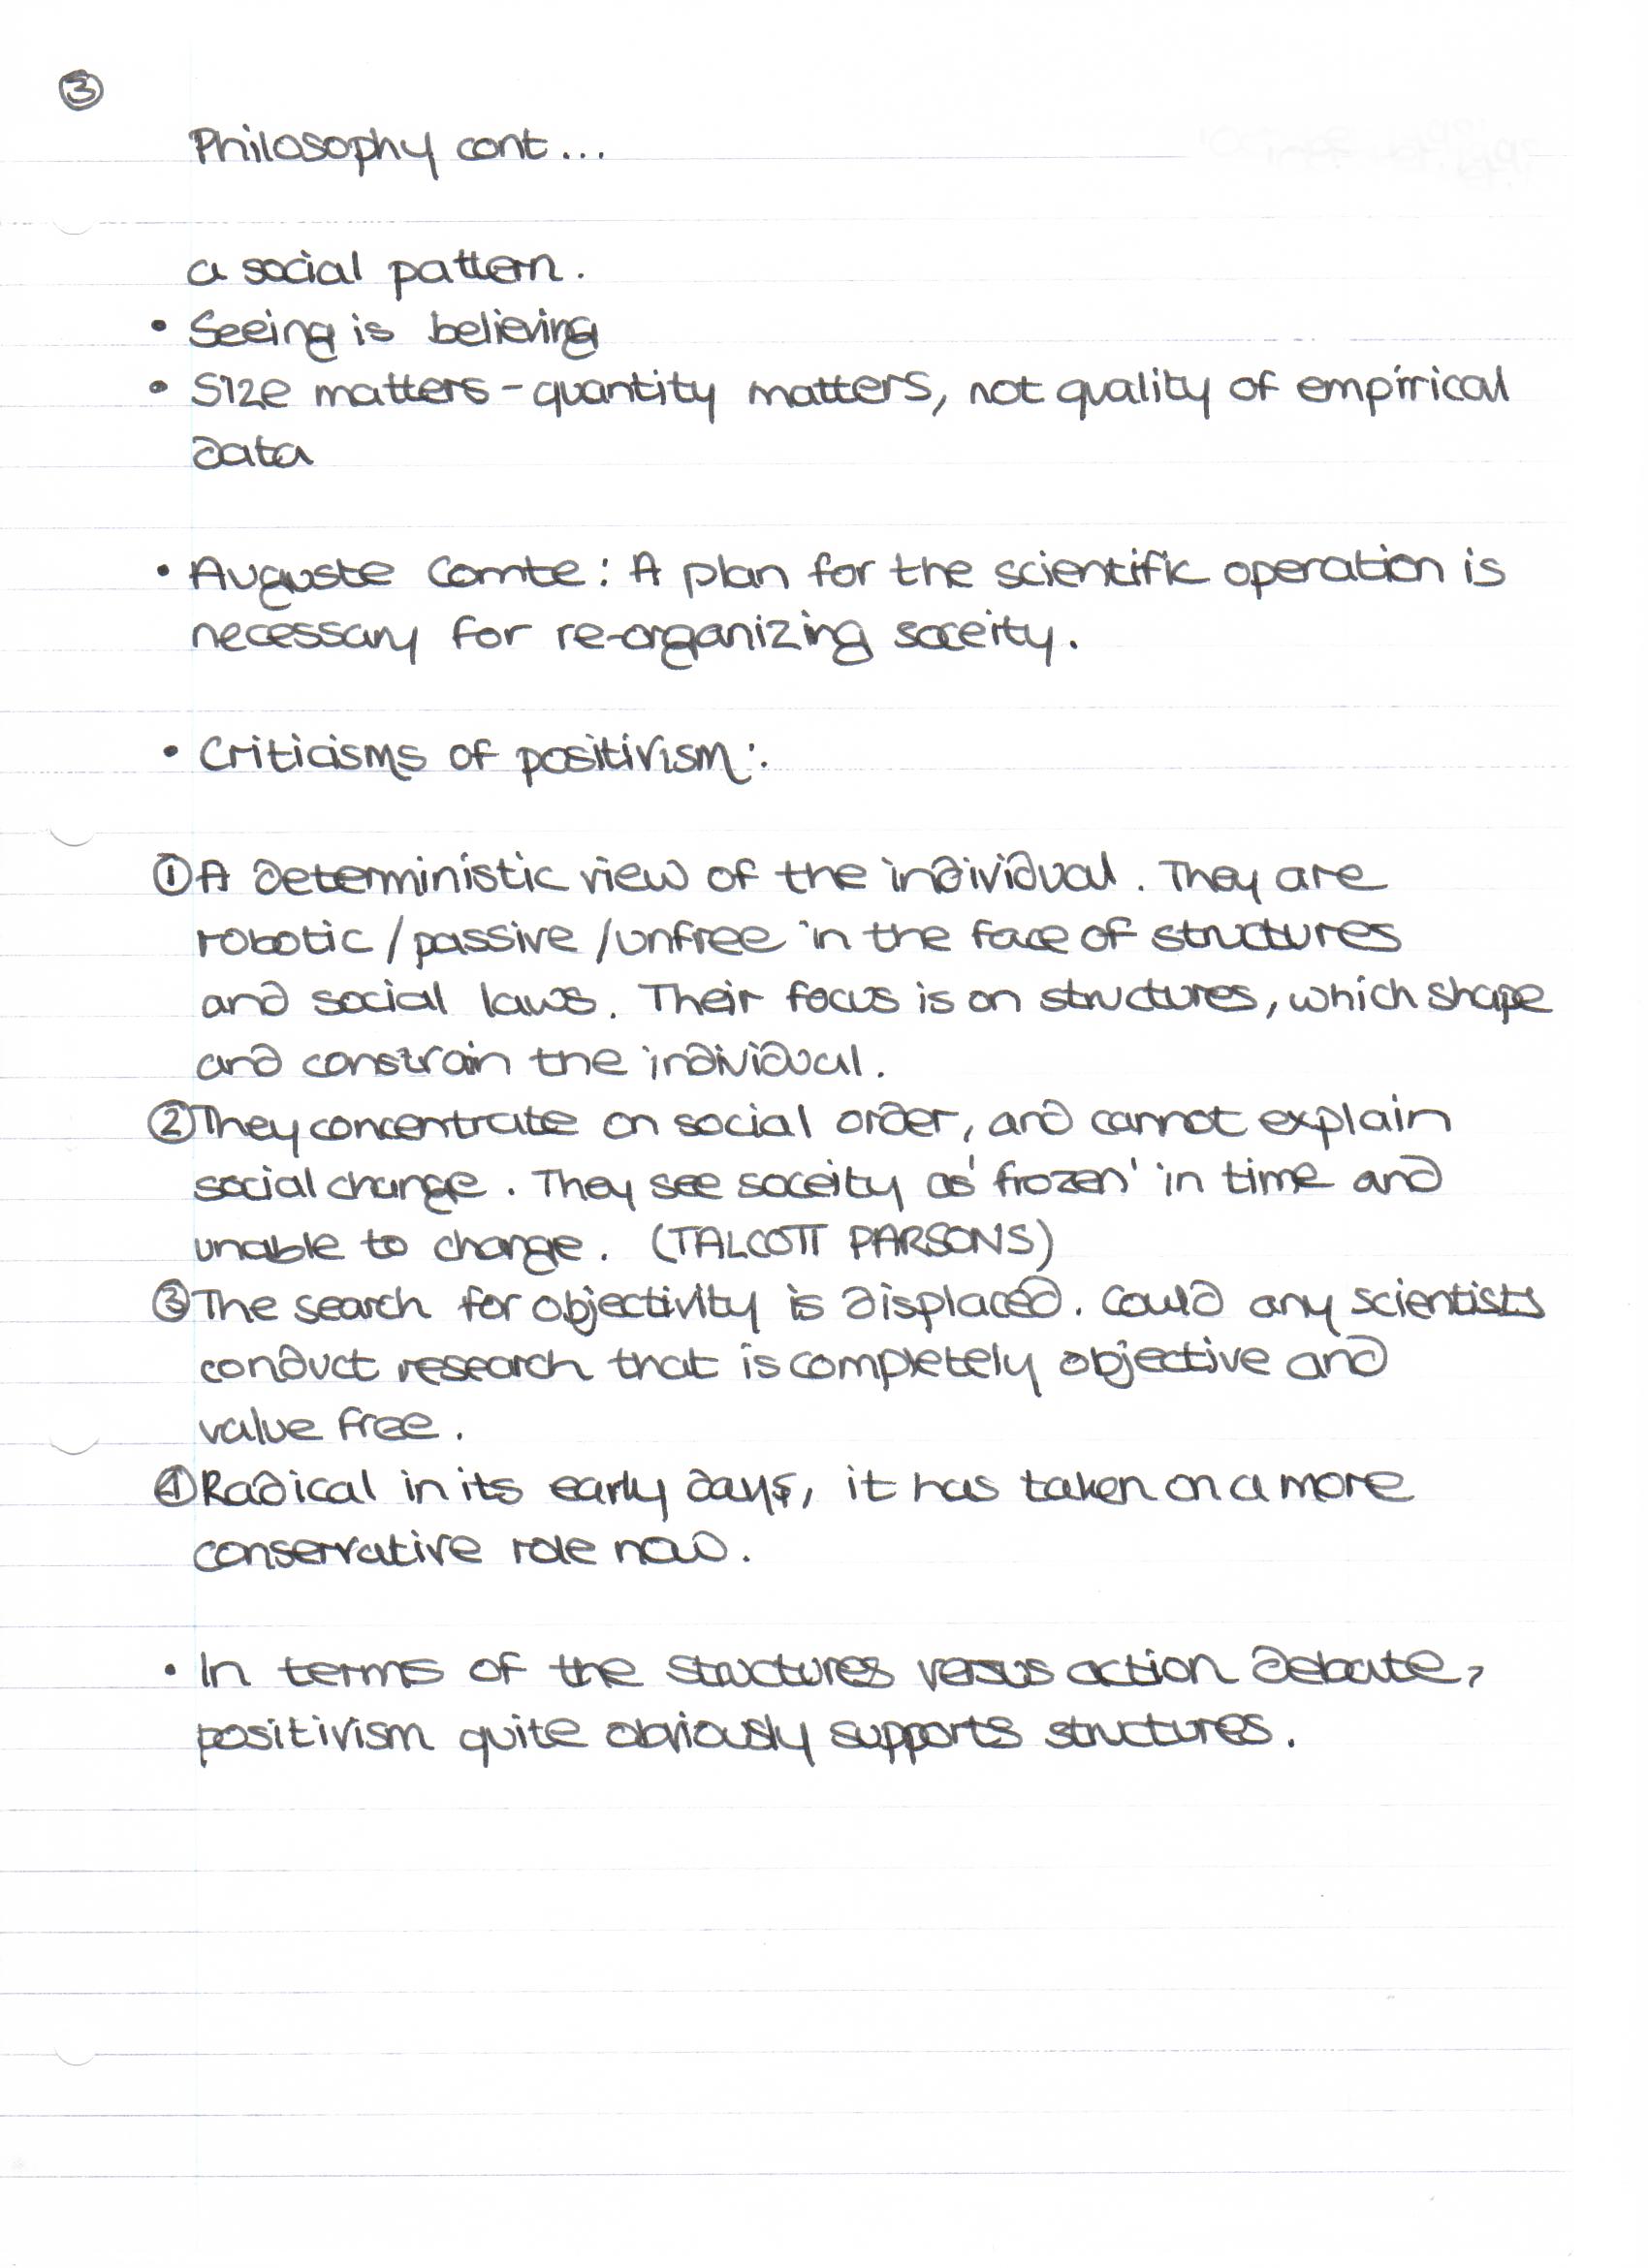 ③
Philosophy cont...
a social pattern.
• Seeing is believing
• Size matters - quantity matters, not quality of empirical
data
• Auguste Comte: A plan for the scientific operation is
necessary for re-organizing soceity.
• Criticisms of positivism:
① A deterministic view of the individual. They are
robotic / passive / unfree in the face of structures
and social laws. Their focus is on structures, which shape
and constrain the individual.
② They concentrate on social order, and cannot explain
social change. They see soceity as 'frozen' in time and
unable to change. (TALCOTT PARSONS)
③ The search for objectivity is displaced. Could any scientists
conduct research that is completely objective and
value free.
④ Radical in its early days, it has taken on a more
conservative role now.
• In terms of the structures versus action debate,
positivism quite obviously supports structures.